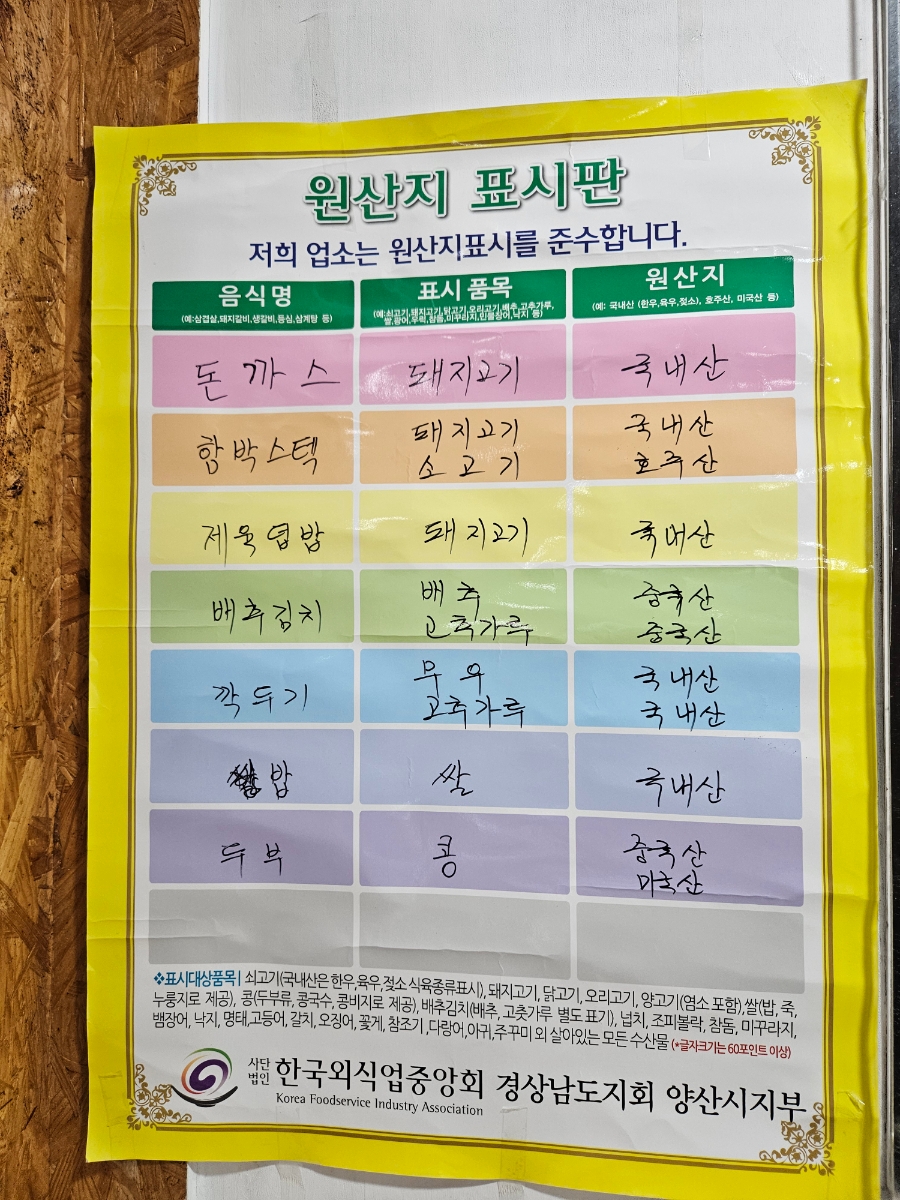 원산지 표시판
저희 업소는 원산지표시를 준수합니다.
음식명 표시 품목 원산지
(예:삼겹살,돼지갈비,생갈비,등심,삼계탕 등) (예:쇠고기,돼지고기,닭고기,오리고기,배추,고춧가루, (예: 국내산 (한우,육우,젖소), 호주산, 미국산 등)
쌀,광어,우럭,참돔,미꾸라지,민물장어,낙지 등)
돈까스 돼지고기 국내산
함박스텍 돼지고기 국내산
소고기 호주산
제육덥밥 돼지고기 국내산
배추김치 배추 중국산
고추가루 중국산
깍두기 무우 국내산
고추가루 국내산
밥 쌀 국내산
두부 콩 중국산
미국산
❖표시대상품목| 쇠고기(국내산은 한우,육우,젖소 식육종류표시), 돼지고기, 닭고기, 오리고기, 양고기(염소 포함),쌀(밥, 죽,
누룽지로 제공), 콩(두부류, 콩국수, 콩비지로 제공), 배추김치(배추, 고춧가루 별도 표기), 넙치, 조피볼락, 참돔, 미꾸라지,
뱀장어, 낙지, 명태,고등어, 갈치, 오징어, 꽃게, 참조기, 다랑어,아귀,주꾸미 외 살아있는 모든 수산물 (*글자크기는 60포인트 이상)
사단
법인 한국외식업중앙회 경상남도지회 양산시지부
Korea Foodservice Industry Association